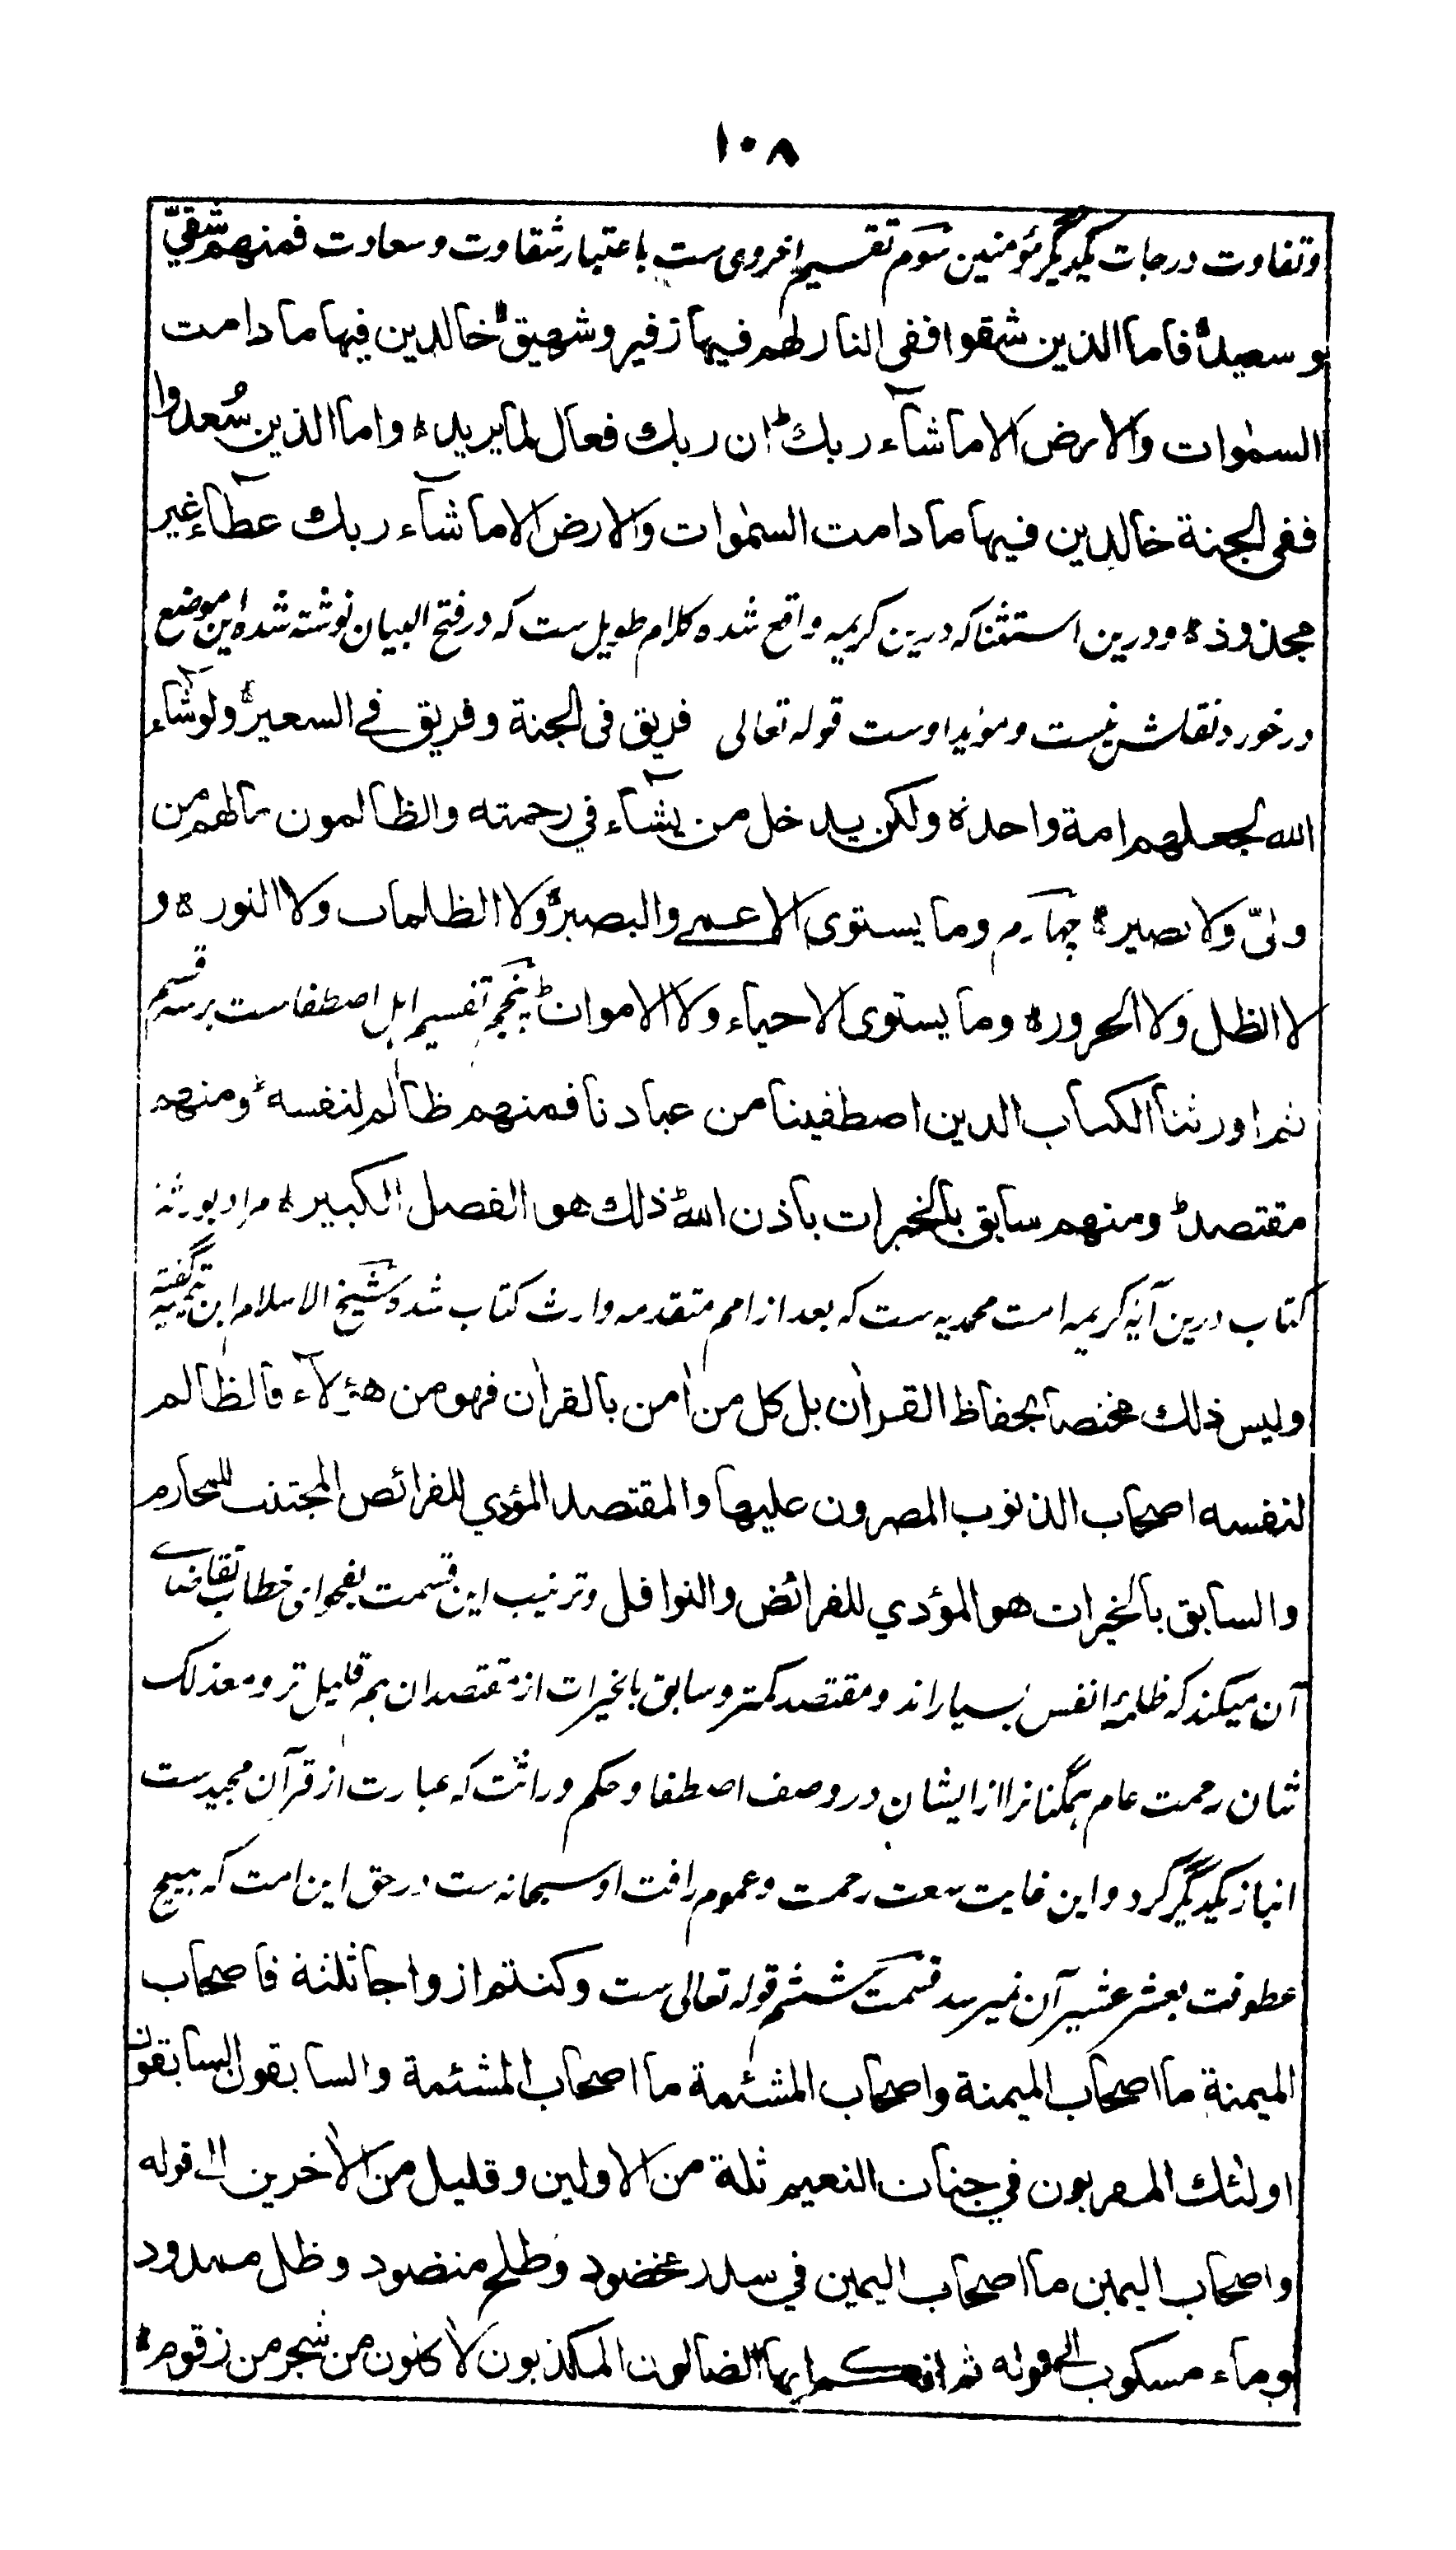 ۱۰۸
وتفاوت درجات یکدیگر مؤمنین سوم تقسیم اخروی ست باعتبار شقاوت و سعادت فمنهم شقيّ
و سعيد فاما الذين شقوا ففي النار لهم فيها زفير وشهيق خالدين فيها ما دامت
السمٰوات والارض الا ما شآء ربك ان ربك فعال لما يريد ه واما الذين سُعدوا
ففي الجنة خالدين فيها ما دامت السمٰوات والارض الا ما شآء ربك عطآء غير
مجذوذ ه ودرین استثنا که درین کریمه واقع شده کلام طویل ست که در فتح البیان نوشته شده این موضع
درخورد نقلش نیست و مؤید اوست قوله تعالی فريق في الجنة وفريق في السعير ولو شآء
الله لجعلهم امة واحدة ولكن يدخل من يشآء في رحمته والظالمون مالهم من
وليّ ولا نصير ه چهارم وما يستوي الاعمى والبصير ولا الظلمات ولا النور ه و
لا الظل ولا الحرور ه وما يستوي الاحياء ولا الاموات پنجم تقسیم اہل اصطفاست بر سه قسم
ثم اورثنا الكتاب الذين اصطفينا من عبادنا فمنهم ظالم لنفسه ومنهم
مقتصد ومنهم سابق بالخيرات باذن الله ذلك هو الفضل الكبير ه مراد بورثهٔ
کتاب درین آیهٔ کریمه امت محمدیه ست که بعد از امم متقدمه وارث کتاب شد و شیخ الاسلام ابن تیمیه گفته
وليس ذلك مختصا بحفاظ القراٰن بل كل من اٰمن بالقراٰن فهو من هؤلآء فالظالم
لنفسه اصحاب الذنوب المصرون عليها والمقتصد المؤدي للفرائض المجتنب للمحارم
والسابق بالخيرات هو المؤدي للفرائض والنوافل وترتیب این قسمت بفحوای خطاب تقاضای
آن میکند که ظلمهٔ انفس بسیار اند و مقتصد کمتر و سابق بالخیرات از مقتصدان هم قلیل تر و معذلک
شان رحمت عام همگنانرا از ایشان در وصف اصطفا و حکم وراثت که عبارت از قرآن مجیدست
انباز یکدیگر کرد و این غایت سعت رحمت و عموم رافت او سبحانه ست در حق این امت که ہیچ
عطوفت بعشر عشیر آن نمیرسد قسمت ششم قوله تعالی ست وكنتم ازواجا ثلثة فاصحاب
الميمنة ما اصحاب الميمنة واصحاب المشئمة ما اصحاب المشئمة والسابقون السابقون
اولٰئك المقربون في جنات النعيم ثلة من الاولين وقليل من الاٰخرين الى قوله
واصحاب اليمين ما اصحاب اليمين في سدر مخضود وطلح منضود وظل ممدود
وماء مسكوب الى قوله ثم انكم ايها الضالون المكذبون لاٰكلون من شجر من زقوم